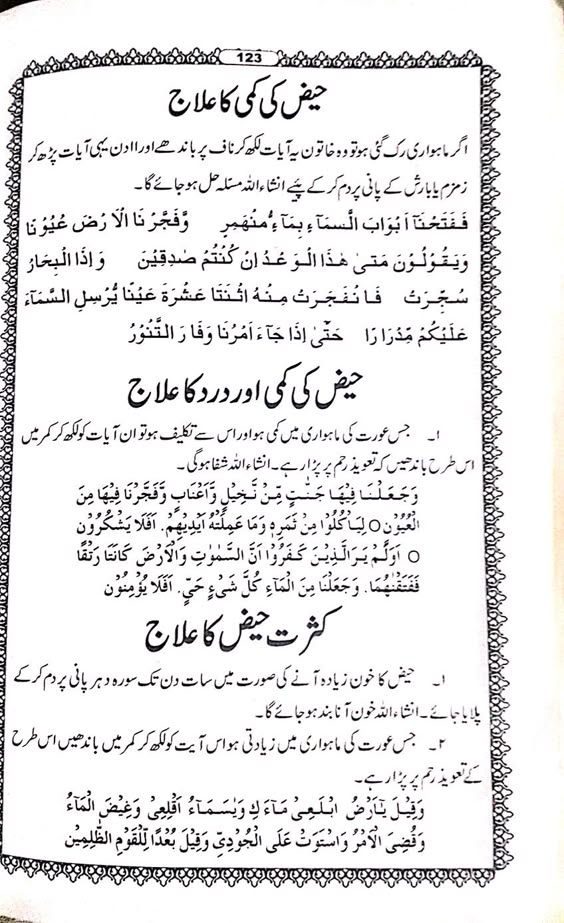 123
حیض کی کمی کا علاج
اگر ماہواری رک گئی ہو تو وہ خاتون یہ آیات لکھ کر ناف پر باندھے اور ۱۱دن یہی آیات پڑھ کر
زمزم یا بارش کے پانی پر دم کر کے پیئے انشاء اللہ مسئلہ حل ہو جائے گا۔
فَفَتَحْنَآ اَبْوَابَ السَّمَآءِ بِمَآءٍ مُّنْهَمِرٍ وَّفَجَّرْنَا الْاَرْضَ عُيُوْنًا
وَيَقُوْلُوْنَ مَتٰى هٰذَا الْوَعْدُ اِنْ كُنْتُمْ صٰدِقِيْنَ وَاِذَا الْبِحَارُ
سُجِّرَتْ فَانْفَجَرَتْ مِنْهُ اثْنَتَا عَشْرَةَ عَيْنًا يُّرْسِلِ السَّمَآءَ
عَلَيْكُمْ مِّدْرَارًا حَتّٰى اِذَا جَآءَ اَمْرُنَا وَفَارَ التَّنُّوْرُ
حیض کی کمی اور درد کا علاج
۱۔ جس عورت کی ماہواری میں کمی ہو اور اس سے تکلیف ہو تو ان آیات کو لکھ کر کمر میں
اس طرح باندھیں کہ تعویذ رحم پر پڑا رہے۔ انشاء اللہ شفا ہو گی۔
وَجَعَلْنَا فِيْهَا جَنّٰتٍ مِّنْ نَّخِيْلٍ وَّاَعْنَابٍ وَّفَجَّرْنَا فِيْهَا مِنَ
الْعُيُوْنِ ○ لِيَاْكُلُوْا مِنْ ثَمَرِهٖ وَمَا عَمِلَتْهُ اَيْدِيْهِمْ. اَفَلَا يَشْكُرُوْنَ
○ اَوَلَمْ يَرَ الَّذِيْنَ كَفَرُوْا اَنَّ السَّمٰوٰتِ وَالْاَرْضَ كَانَتَا رَتْقًا
فَفَتَقْنٰهُمَا. وَجَعَلْنَا مِنَ الْمَآءِ كُلَّ شَيْءٍ حَيٍّ. اَفَلَا يُؤْمِنُوْنَ
کثرت حیض کا علاج
۱۔ حیض کا خون زیادہ آنے کی صورت میں سات دن تک سورہ دہر پانی پر دم کر کے
پلایا جائے۔ انشاء اللہ خون آنا بند ہو جائے گا۔
۲۔ جس عورت کی ماہواری میں زیادتی ہو اس آیت کو لکھ کر کمر میں باندھیں اس طرح
کے تعویذ رحم پر پڑا رہے۔
وَقِيْلَ يٰٓاَرْضُ ابْلَعِيْ مَآءَكِ وَيٰسَمَآءُ اَقْلِعِيْ وَغِيْضَ الْمَآءُ
وَقُضِيَ الْاَمْرُ وَاسْتَوَتْ عَلَى الْجُوْدِيِّ وَقِيْلَ بُعْدًا لِّلْقَوْمِ الظّٰلِمِيْنَ